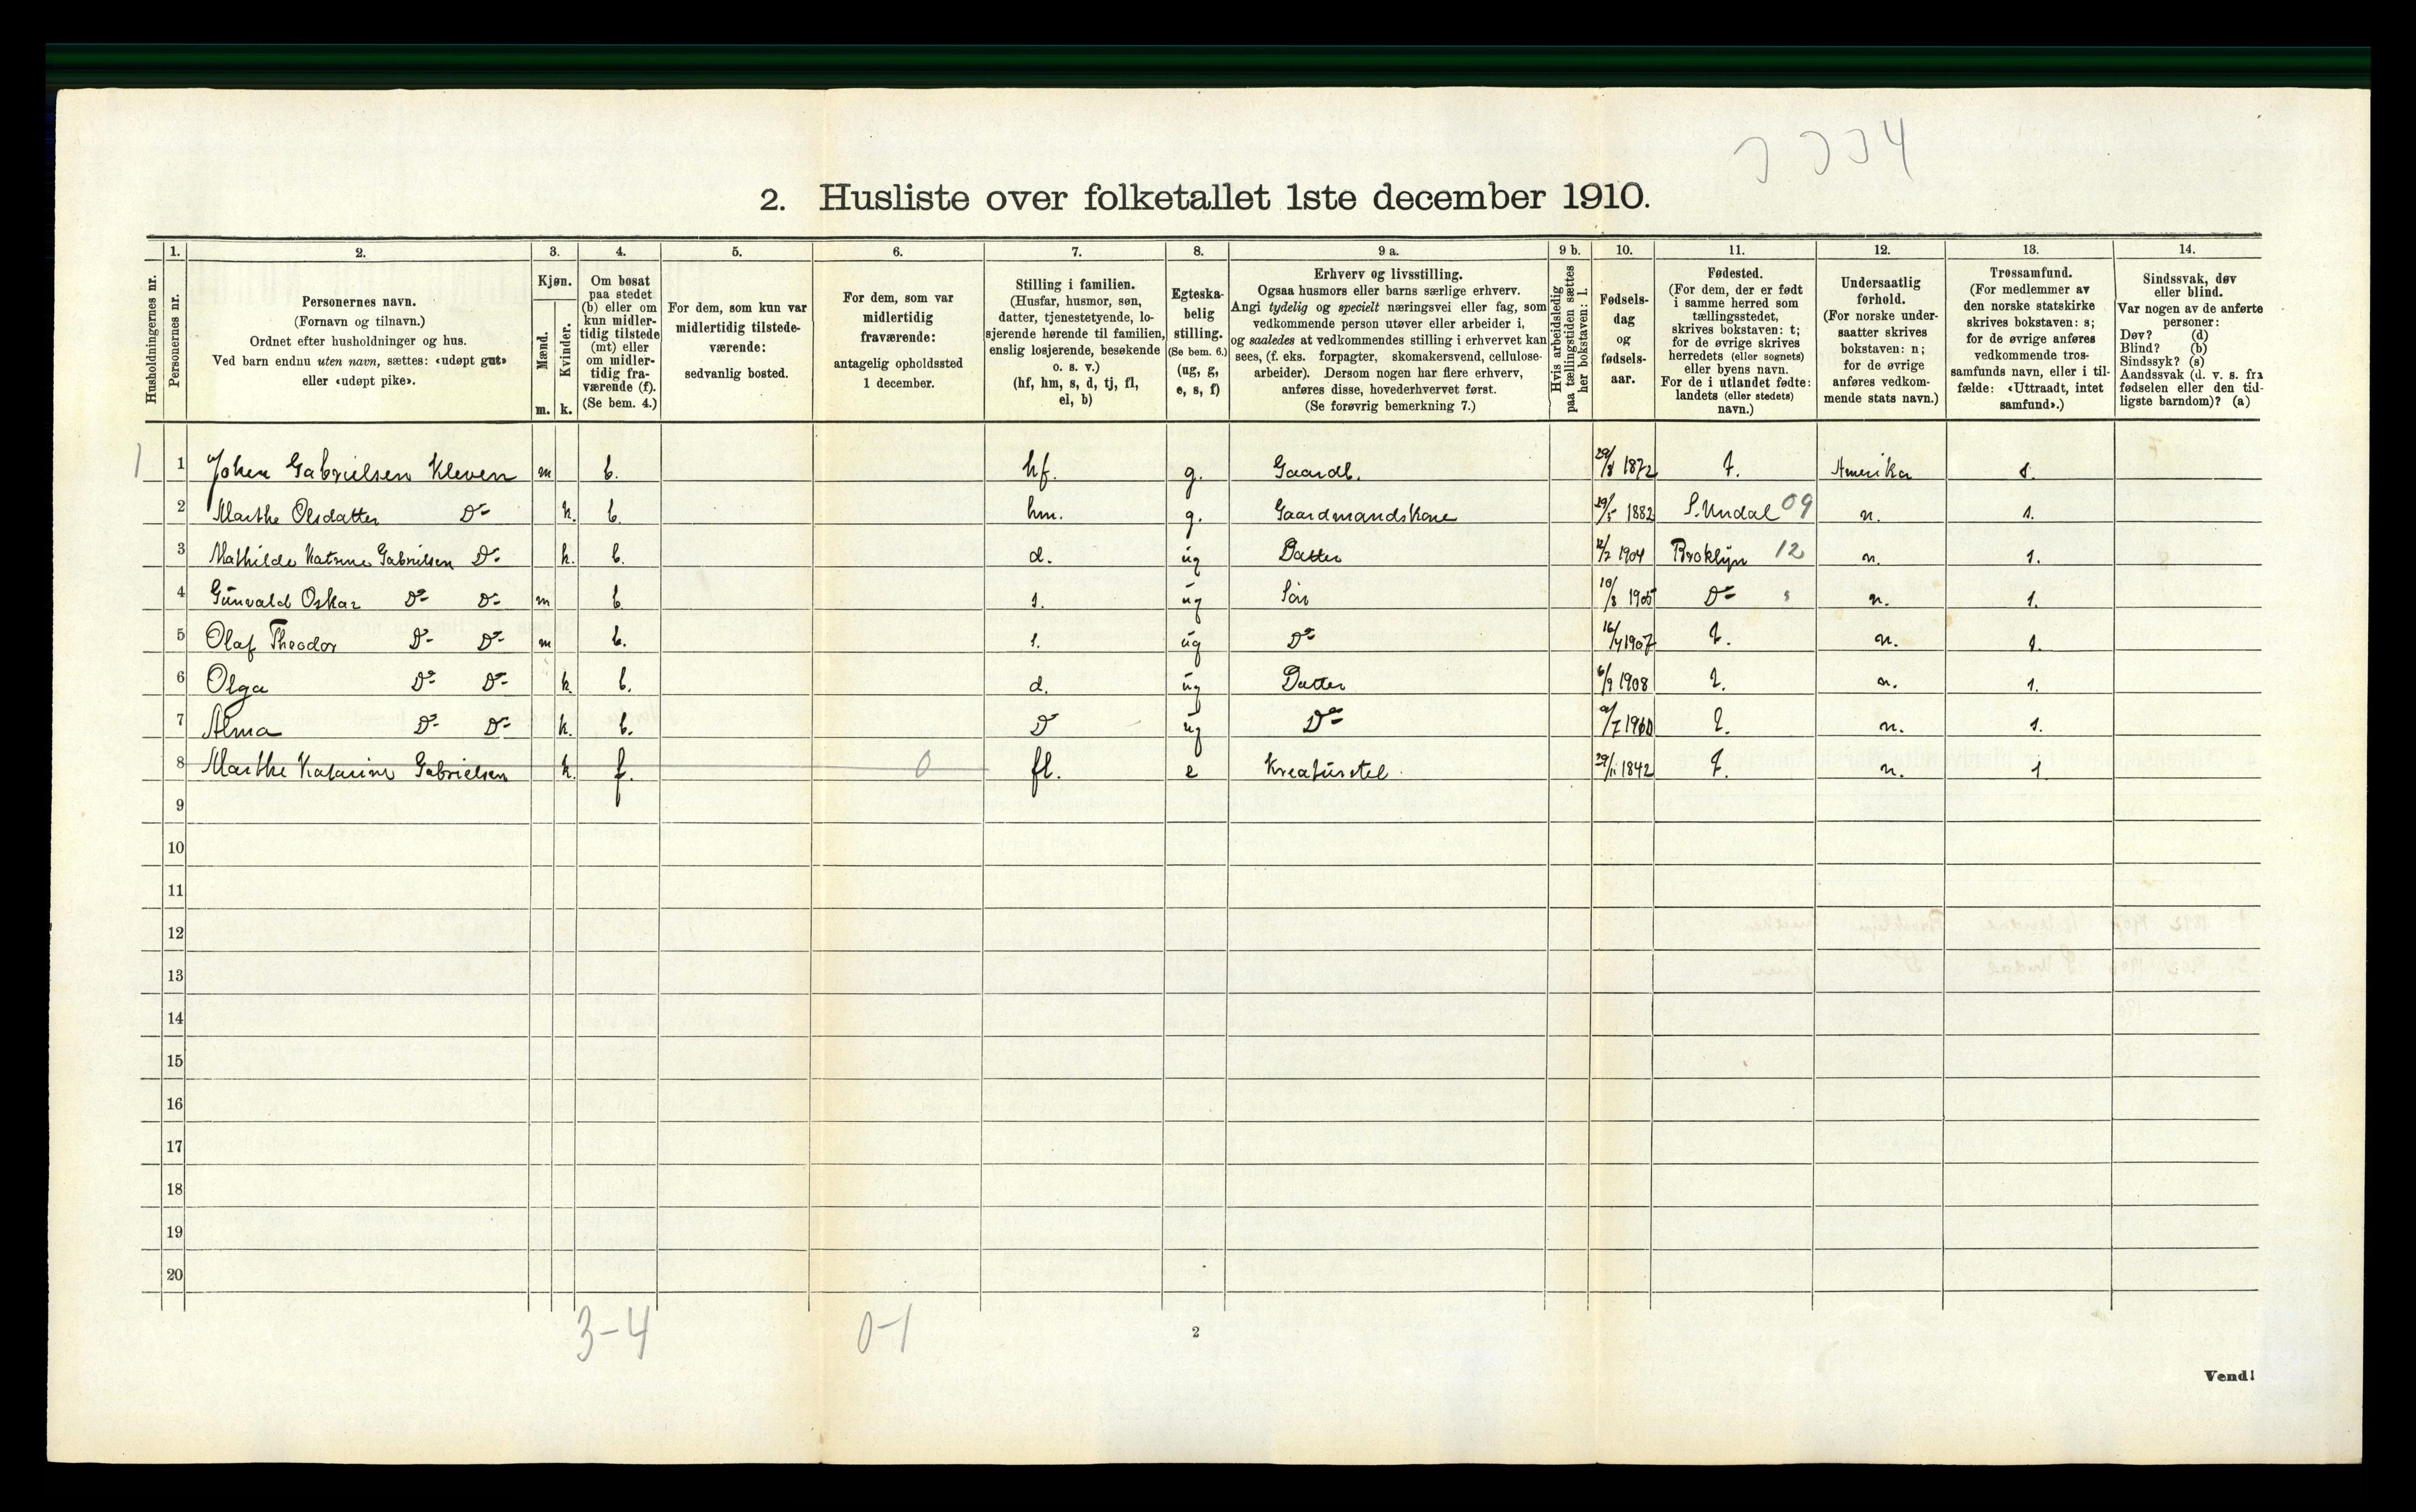 3334
2. Husliste over folketallet 1ste december 1910.
Husholdningernes nr.
1. Personernes nr.
2. Personernes navn. (Fornavn og tilnavn.) Ordnet efter husholdninger og hus. Ved barn endnu uten navn, sættes: «udøpt gut» eller «udøpt pike».
3. Kjøn. Mænd. m. Kvinder. k.
4. Om bosat paa stedet (b) eller om kun midlertidig tilstede (mt) eller om midlertidig fraværende (f). (Se bem. 4.)
5. For dem, som kun var midlertidig tilstedeværende: sedvanlig bosted.
6. For dem, som var midlertidig fraværende: antagelig opholdssted 1 december.
7. Stilling i familien. (Husfar, husmor, søn, datter, tjenestetyende, losjerende hørende til familien, enslig losjerende, besøkende o. s. v.) (hf, hm, s, d, tj, fl, el, b)
8. Egteskabelig stilling. (Se bem. 6.) (ug, g, e, s, f)
9 a. Erhverv og livsstilling. Ogsaa husmors eller barns særlige erhverv. Angi tydelig og specielt næringsvei eller fag, som vedkommende person utøver eller arbeider i, og saaledes at vedkommendes stilling i erhvervet kan sees, (f. eks. forpagter, skomakersvend, cellulosearbeider). Dersom nogen har flere erhverv, anføres disse, hovederhvervet først. (Se forøvrig bemerkning 7.)
9 b. Hvis arbeidsledig paa tællingstiden sættes her bokstaven: l.
10. Fødselsdag og fødselsaar.
11. Fødested. (For dem, der er født i samme herred som tællingsstedet, skrives bokstaven: t; for de øvrige skrives herredets (eller sognets) eller byens navn. For de i utlandet fødte: landets (eller stedets) navn.)
12. Undersaatlig forhold. (For norske undersaatter skrives bokstaven: n; for de øvrige anføres vedkommende stats navn.)
13. Trossamfund. (For medlemmer av den norske statskirke skrives bokstaven: s; for de øvrige anføres vedkommende trossamfunds navn, eller i tilfælde: «Uttraadt, intet samfund».)
14. Sindssvak, døv eller blind. Var nogen av de anførte personer: Døv? (d) Blind? (b) Sindssyk? (s) Aandssvak (d. v. s. fra fødselen eller den tidligste barndom)? (a)
1 1 Johen Gabrielsen Kleven m b. hf. g. Gaardb. 29/8 1872 t. Amerika s.
2 Marthe Olsdatter Do k. b. hm. g. Gaardmandskone 29/5 1882 S. Undal 09 n. s.
3 Mathilde Katrine Gabrielsen Do k. b. d. ug Datter 12/2 1904 Broklyn 12 n. s.
4 Gunvald Oskar Do Do m b s. ug Søn 10/8 1905 Do n. s.
5 Olaf Theodor Do Do m b. s. ug Do 16/4 1907 t. n. s.
6 Olga Do Do k. b. d. ug Datter 6/9 1908 t. n. s.
7 Alma Do Do k. b. D ug Do t. n. s.
8 Marthe Katarine Gabrielsen k. f. 0 fl. e Kreaturstel 29/11 1842 t. n. s
9
10
11
12
13
14
15
16
17
18
19
20
3-4 0-1
2
Vend!